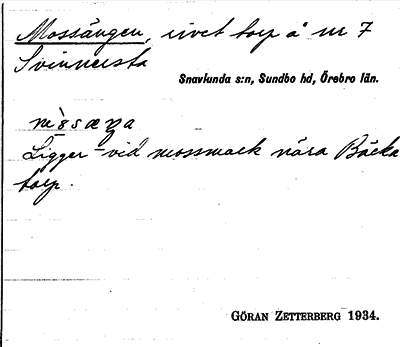 Mossängen, rivet torp å nr 7
Svinnersta
Snavlunda s:n, Sundbo hd, Örebro län.
Ligger vid mossmark nära Bäcka
torp.
GÖRAN ZETTERBERG 1934.